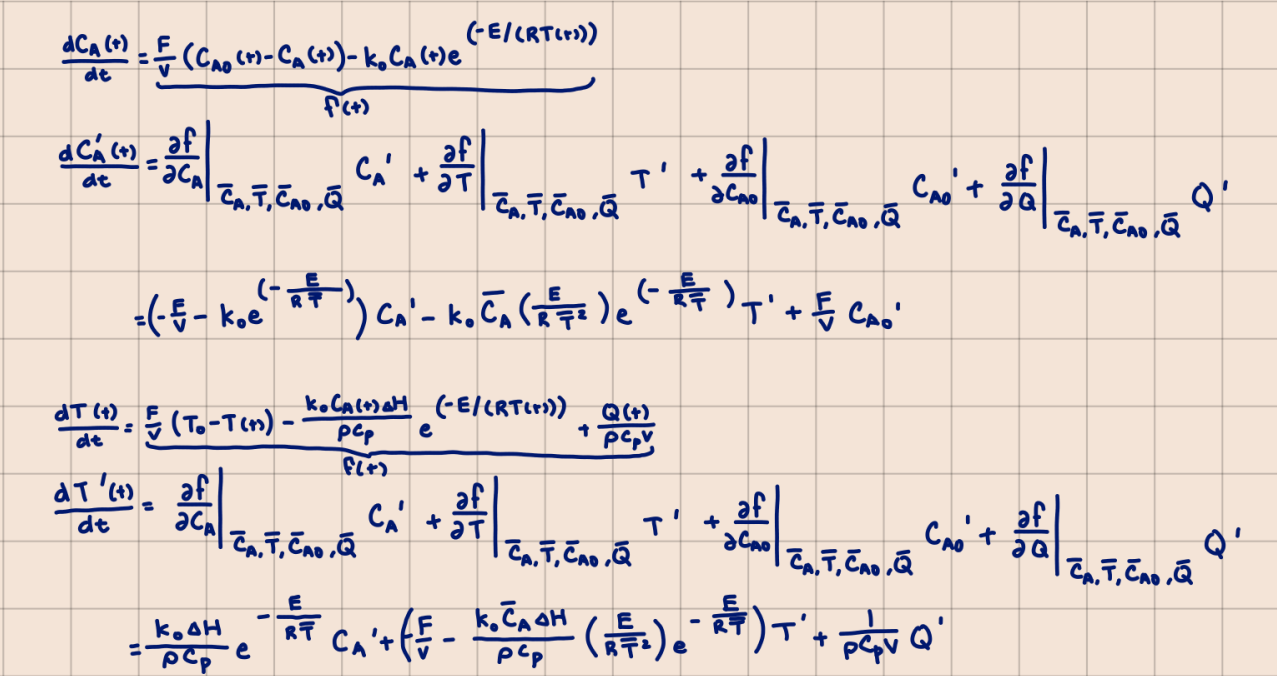 dC_A(t)/dt = F/V (C_A0(t) - C_A(t)) - k_0 C_A(t) e^(-E/(RT(t)))
f(t)
dC_A'(t)/dt = ∂f/∂C_A |_{C̄_A, T̄, C̄_A0, Q̄} C_A' + ∂f/∂T |_{C̄_A, T̄, C̄_A0, Q̄} T' + ∂f/∂C_A0 |_{C̄_A, T̄, C̄_A0, Q̄} C_A0' + ∂f/∂Q |_{C̄_A, T̄, C̄_A0, Q̄} Q'
= (-F/V - k_0 e^(-E/(R T̄))) C_A' - k_0 C̄_A (E/(R T̄²)) e^(-E/(R T̄)) T' + F/V C_A0'
dT(t)/dt = F/V (T_0 - T(t)) - (k_0 C_A(t) ΔH)/(ρ C_p) e^(-E/(RT(t))) + Q(t)/(ρ C_p V)
f(t)
dT'(t)/dt = ∂f/∂C_A |_{C̄_A, T̄, C̄_A0, Q̄} C_A' + ∂f/∂T |_{C̄_A, T̄, C̄_A0, Q̄} T' + ∂f/∂C_A0 |_{C̄_A, T̄, C̄_A0, Q̄} C_A0' + ∂f/∂Q |_{C̄_A, T̄, C̄_A0, Q̄} Q'
= (k_0 ΔH)/(ρ C_p) e^{-E/(R T̄)} C_A' + (-F/V - (k_0 C̄_A ΔH)/(ρ C_p) (E/(R T̄²)) e^{-E/(R T̄)}) T' + 1/(ρ C_p V) Q'